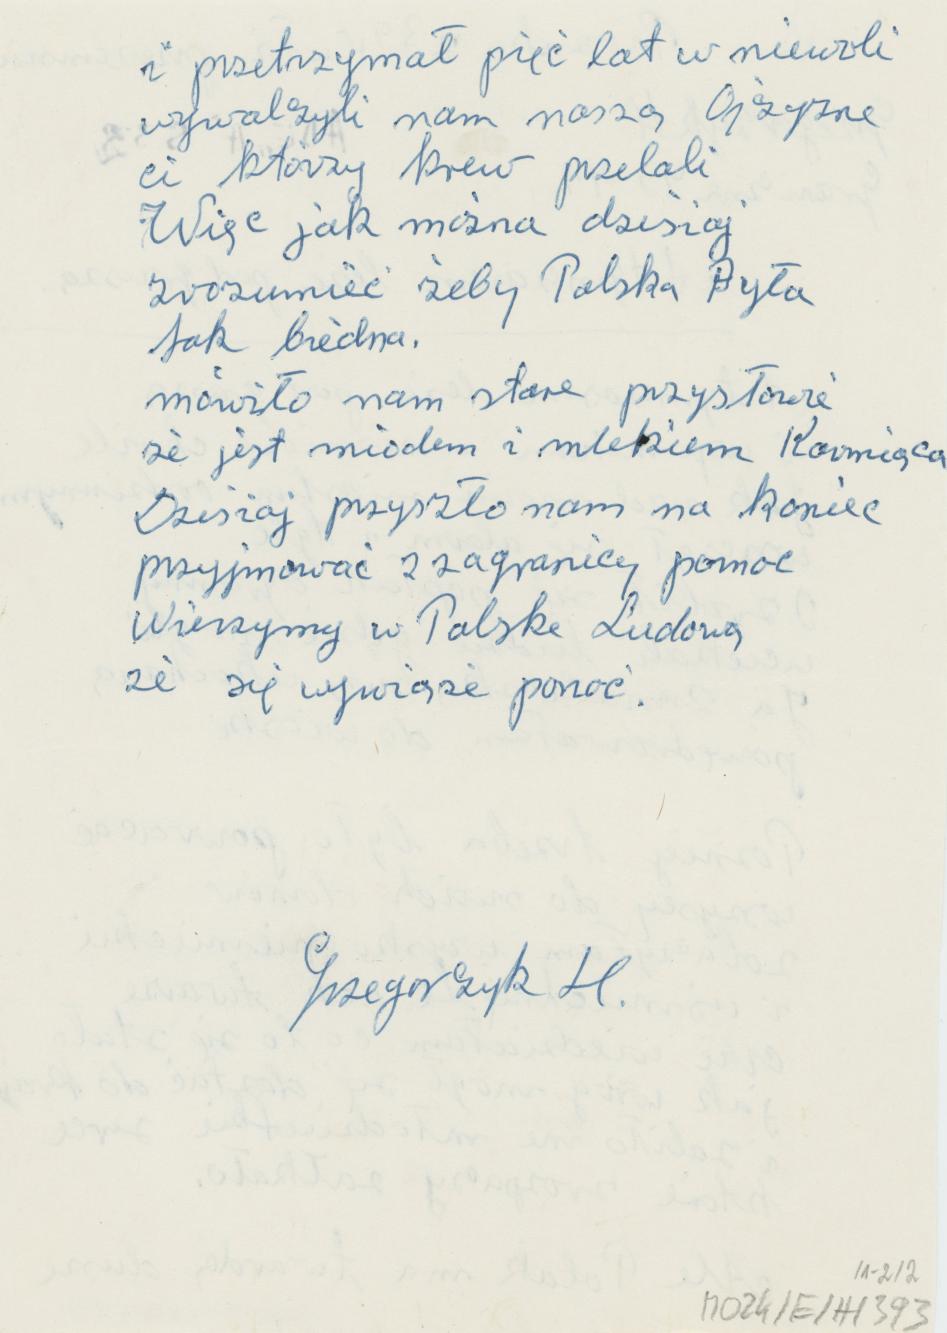 i przetrzymał pięć lat w niewoli
wywalczyli nam naszą Ojczyzne
ci którzy krew przelali
Więc jak można dzisiaj
zrozumieć żeby Polska Była
tak biedna.
mówiło nam stare przysłowie
że jest miodem i mlekiem Karmiąca
Dzisiaj przyszło nam na koniec
przyjmować z zagranicy pomoc
Wierzymy w Polske Ludową
że się wywiąże ponoć.
Grzegorczyk H.
11-2/2